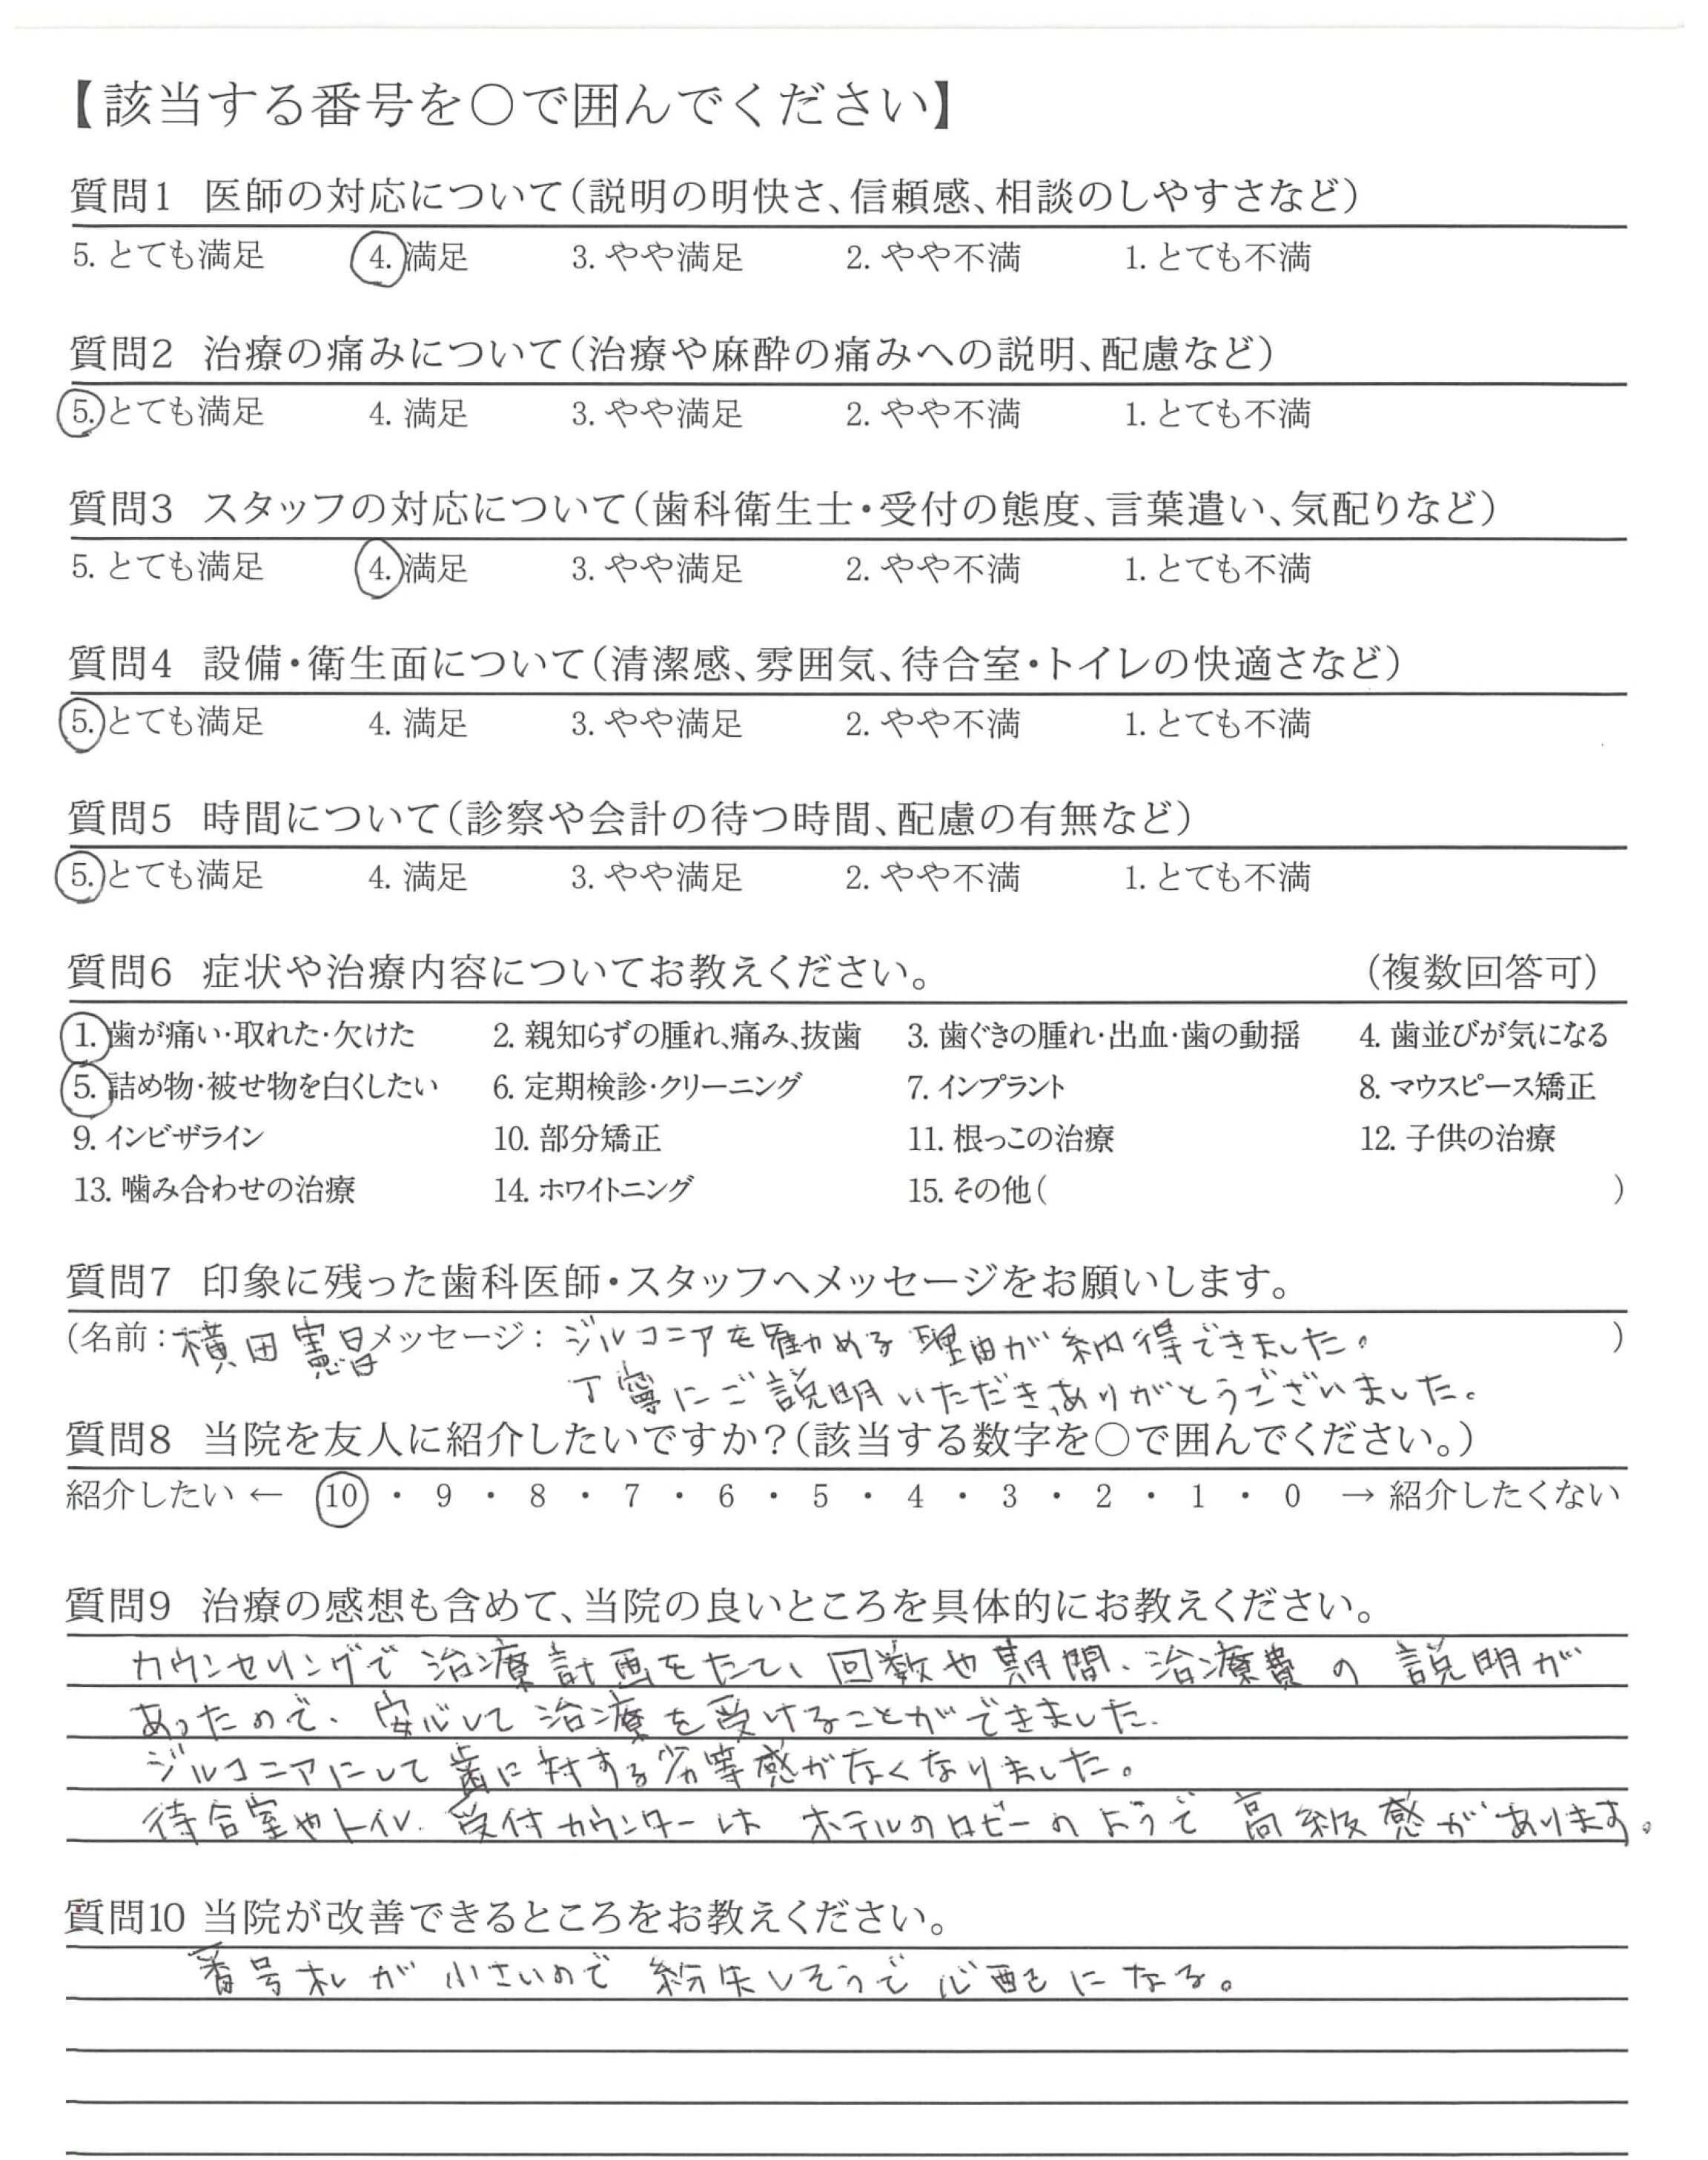 【該当する番号を○で囲んでください】
質問1 医師の対応について(説明の明快さ、信頼感、相談のしやすさなど)
5. とても満足 4. 満足 3. やや満足 2. やや不満 1. とても不満
質問2 治療の痛みについて(治療や麻酔の痛みへの説明、配慮など)
5. とても満足 4. 満足 3. やや満足 2. やや不満 1. とても不満
質問3 スタッフの対応について(歯科衛生士・受付の態度、言葉遣い、気配りなど)
5. とても満足 4. 満足 3. やや満足 2. やや不満 1. とても不満
質問4 設備・衛生面について(清潔感、雰囲気、待合室・トイレの快適さなど)
5. とても満足 4. 満足 3. やや満足 2. やや不満 1. とても不満
質問5 時間について(診察や会計の待つ時間、配慮の有無など)
5. とても満足 4. 満足 3. やや満足 2. やや不満 1. とても不満
質問6 症状や治療内容についてお教えください。 (複数回答可)
1. 歯が痛い・取れた・欠けた 2. 親知らずの腫れ、痛み、抜歯 3. 歯ぐきの腫れ・出血・歯の動揺 4. 歯並びが気になる
5. 詰め物・被せ物を白くしたい 6. 定期検診・クリーニング 7. インプラント 8. マウスピース矯正
9. インビザライン 10. 部分矯正 11. 根っこの治療 12. 子供の治療
13. 噛み合わせの治療 14. ホワイトニング 15. その他( )
質問7 印象に残った歯科医師・スタッフへメッセージをお願いします。
(名前:横田憲昌 メッセージ:ジルコニアを勧める理由が納得できました。 )
丁寧にご説明いただき、ありがとうございました。
質問8 当院を友人に紹介したいですか?(該当する数字を○で囲んでください。)
紹介したい ← 10 ・ 9 ・ 8 ・ 7 ・ 6 ・ 5 ・ 4 ・ 3 ・ 2 ・ 1 ・ 0 → 紹介したくない
質問9 治療の感想も含めて、当院の良いところを具体的にお教えください。
カウンセリングで治療計画をたて、回数や期間、治療費の説明が
あったので、安心して治療を受けることができました。
ジルコニアにして歯に対する劣等感がなくなりました。
待合室やトイレ、受付カウンターは ホテルのロビーのようで高級感があります。
質問10 当院が改善できるところをお教えください。
番号札が小さいので紛失しそうで心配になる。